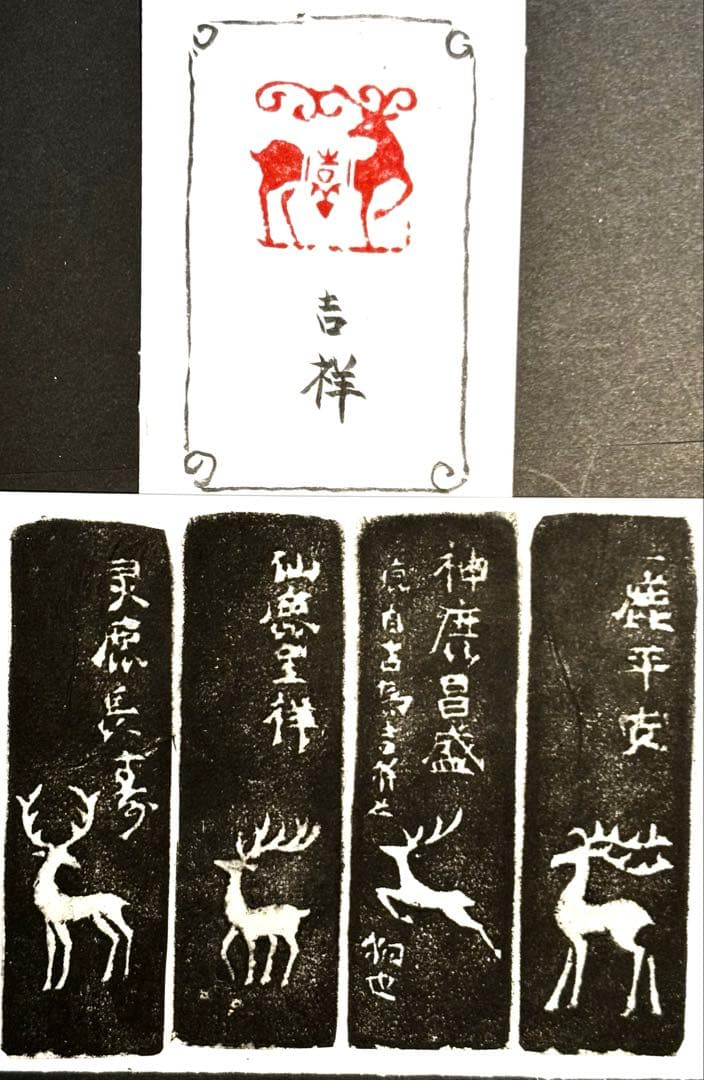 吉祥
一鹿平安
神鹿昌盛
鹿自古為吉祥之
物也
仙鹿呈祥
灵鹿長寿